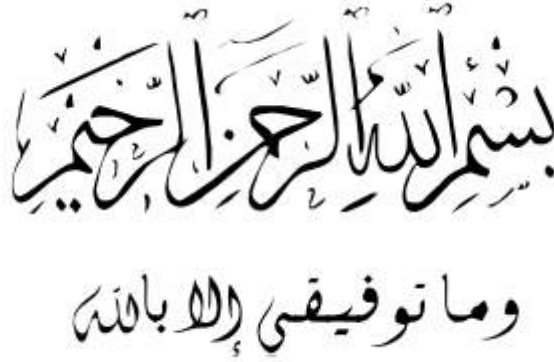 بِسْمِ اللهِ الرَّحْمَنِ الرَّحِيمِ
وما توفيقي إلا بالله